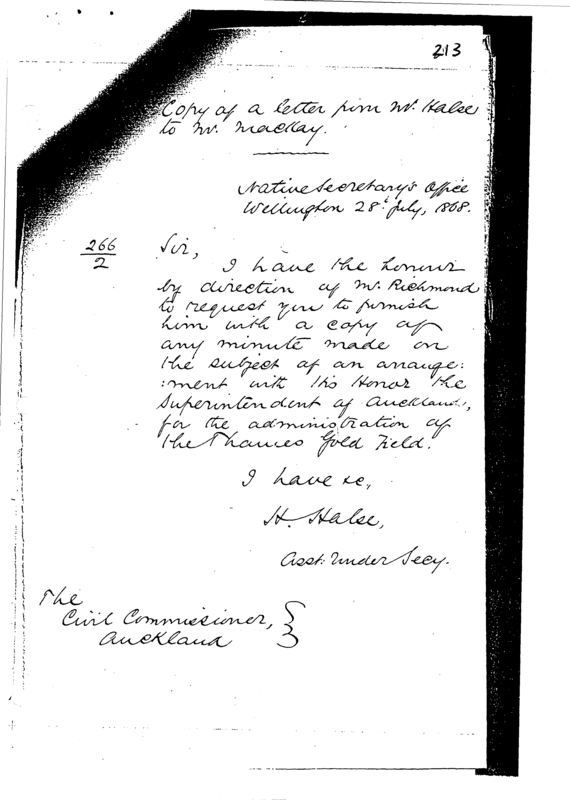 213
Copy of a letter from Mr. Halse
to Mr. Mackay.
Native Secretary's Office
Wellington 28th July, 1868.
266
2
Sir,
I have the honour
by direction of Mr. Richmond
to request you to furnish
him with a copy of
any minute made on
the subject of an arrange:
:ment with His Honor the
Superintendent of Auckland,
for the administration of
the Thames Gold Field.
I have &c,
H. Halse,
Asst: Under Secy.
The
Civil Commissioner,
Auckland